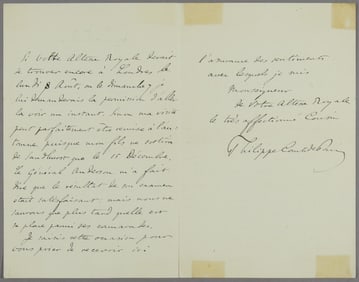 Si Votre Altesse Royale devait
se trouver encore à Londres le
lundi 8 Août, ou le Dimanche 7 je
lui demanderais la permission d'aller
la voir un instant. Mais ma visite
peut parfaitement être remise à l'au-
tomne puisque mon fils ne sortira
de Sandhurst que le 15 Décembre.
Le Général Anderson m'a fait
dire que le résultat de son examen
était satisfaisant, mais nous ne
saurons que plus tard quelle est
sa place parmi ses camarades.
Je saisis cette occasion pour
vous prier de recevoir ici
l'assurance des sentiments
avec lesquels je suis
Monseigneur
de Votre Altesse Royale
le très affectionné Cousin
Philippe Comte de Paris